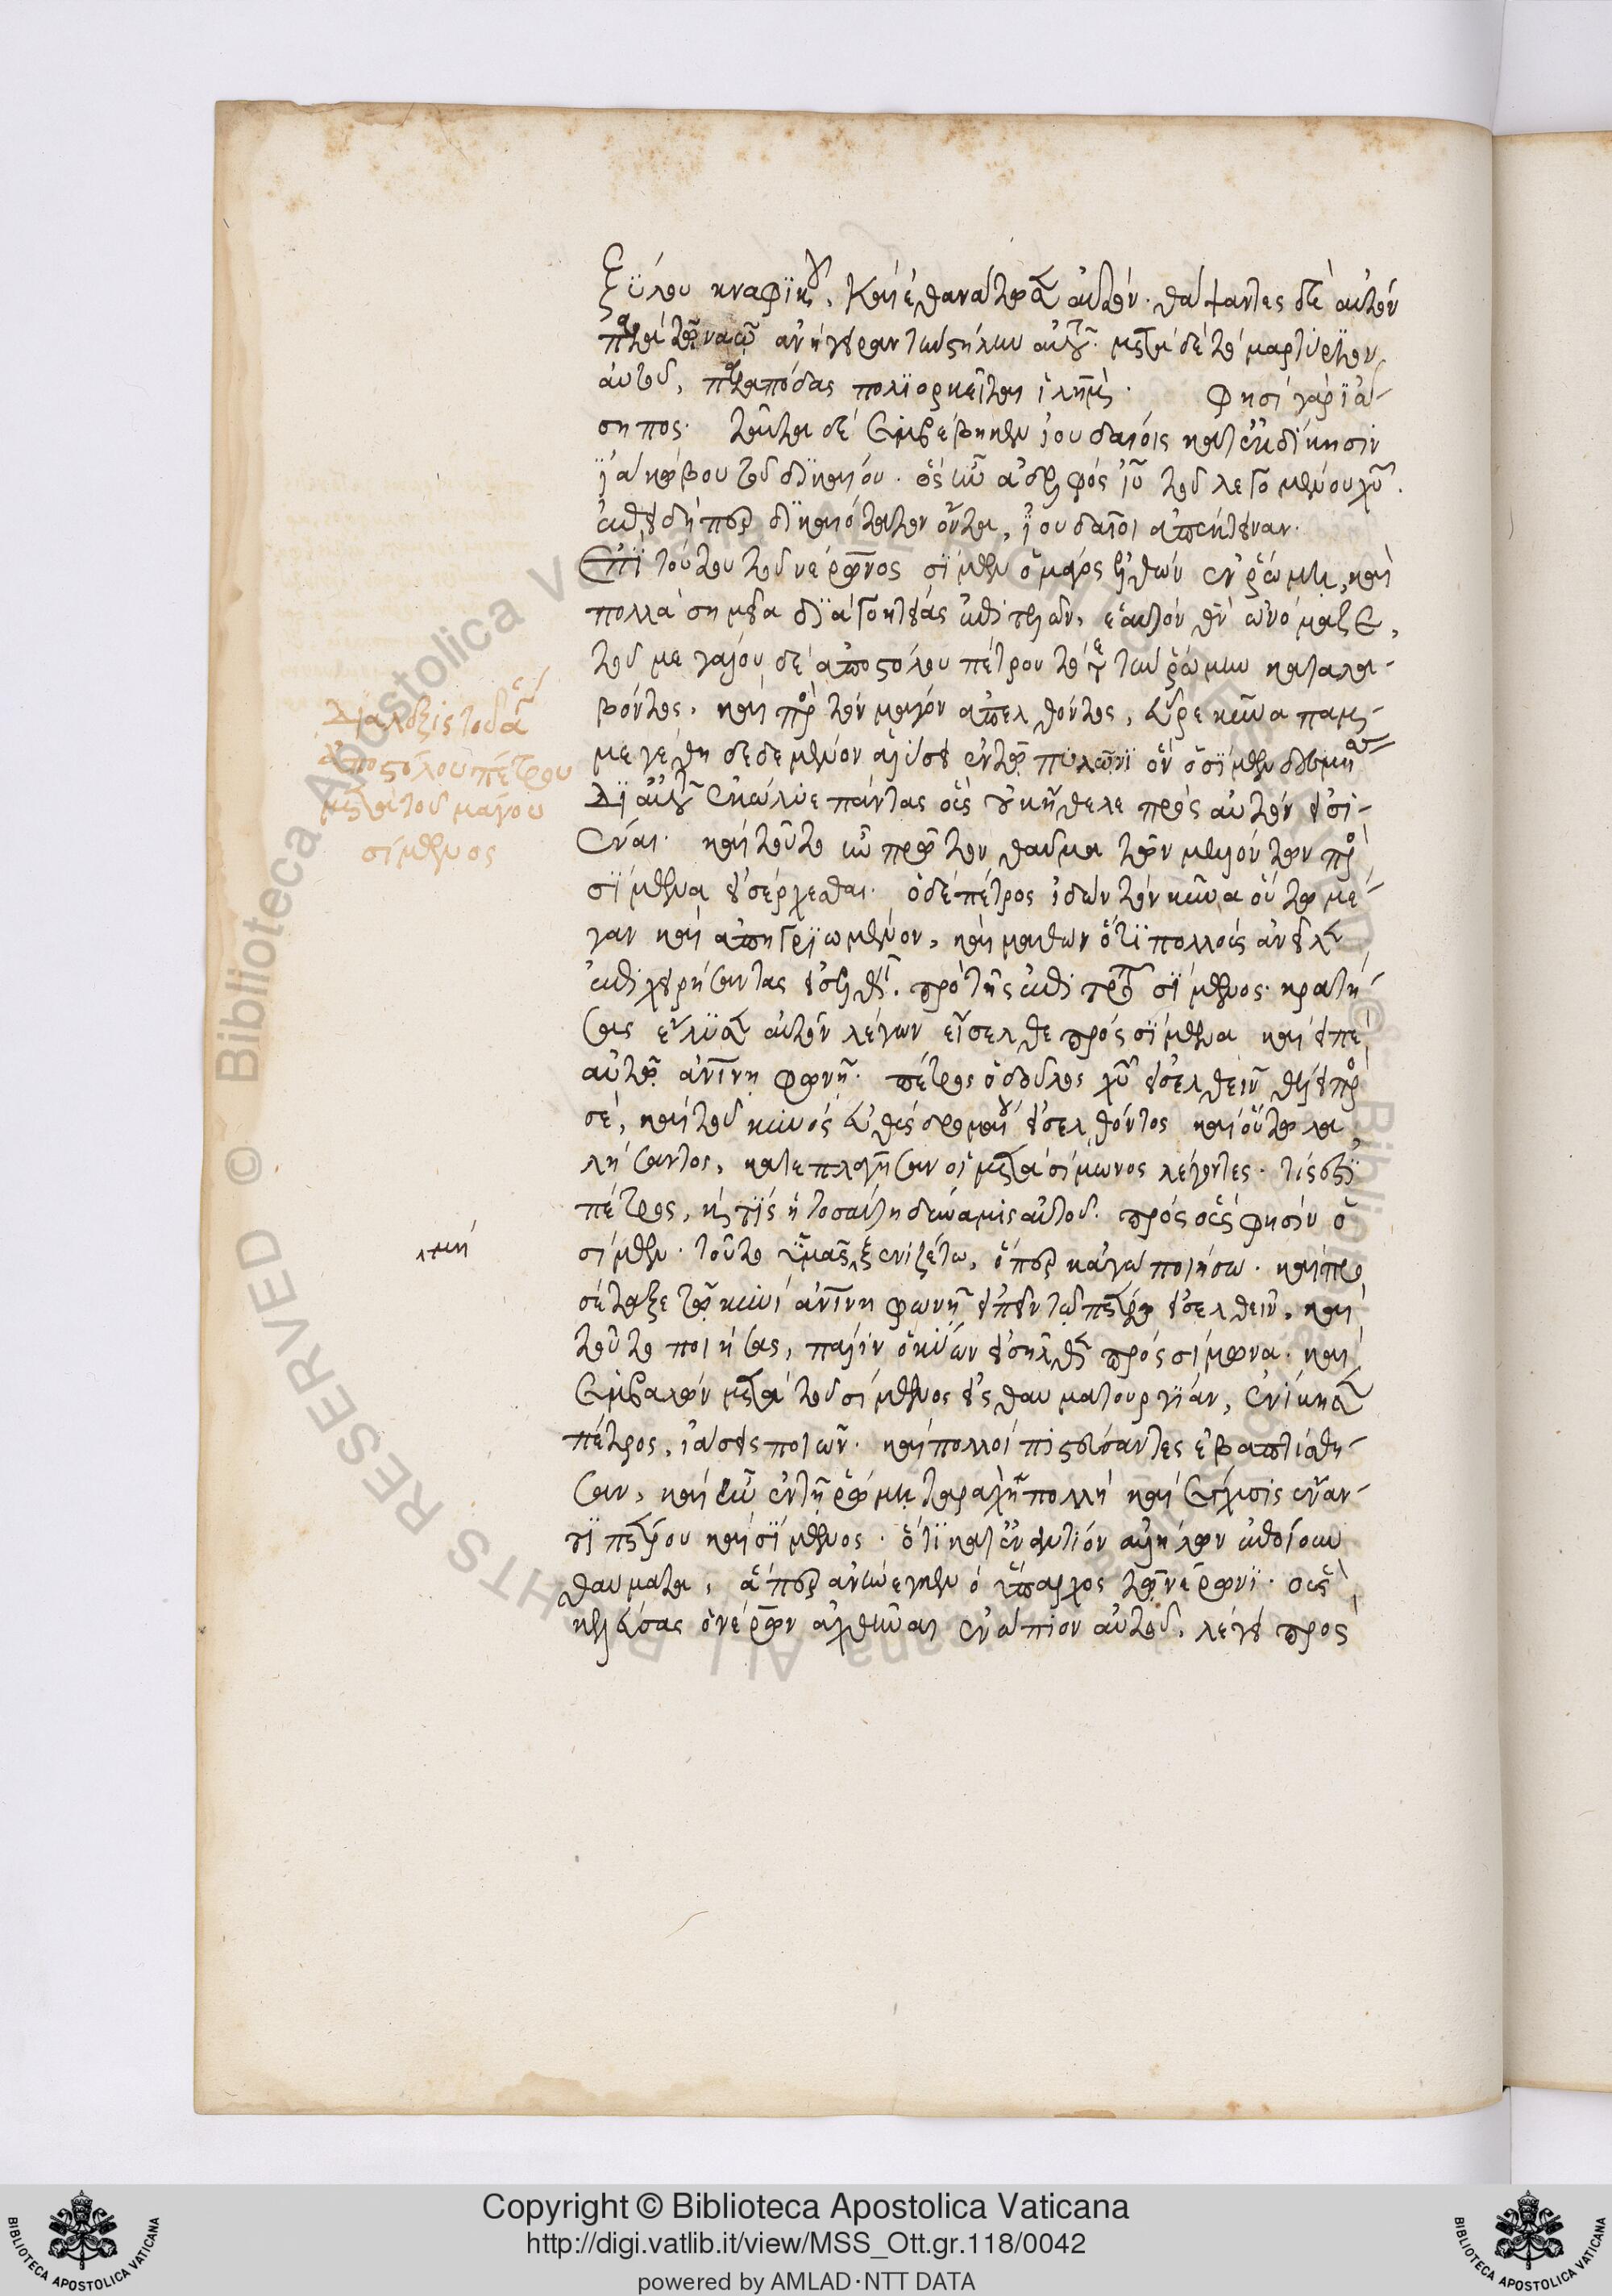 ξύλου κναφικοῦ, καὶ ἐθανάτωσαν αὐτόν. θάψαντες δὲ αὐτὸν
παρὰ τῷ ναῷ ἀνήγειραν τὴν στήλην αὐτοῦ. μετὰ δὲ τὸ μαρτύριον
αὐτοῦ, παρὰ πόδας πολιορκεῖται ἱλημ. φησὶ γὰρ ἰώ-
σηπος. ταῦτα δὲ συμβέβηκεν ἰουδαίοις κατ' ἐκδίκησιν
ἰακώβου τοῦ δικαίου. ὃς ἦν ἀδελφὸς ἰῦ τοῦ λεγομένου χῦ.
ἐπειδήπερ δικαιότατον ὄντα, ἰουδαῖοι ἀπέκτειναν.
Ἐπὶ τούτου τοῦ νέρωνος σίμων ὁ μάγος ἐλθὼν ἐν ῥώμῃ, καὶ
πολλὰ σημεῖα διὰ γοητείας ἐπιτελῶν, ἑαυτὸν θν ὠνόμαζε,
τοῦ μεγάλου δὲ ἀποστόλου πέτρου τότε τὴν ῥώμην καταλα-
βόντος, καὶ πρὸς τὸν μάγον ἀπελθόντος, εὗρε κύνα παμ-
μεγέθη δεδεμένον ἁλύσει ἐν τῷ πυλῶνι ὃν ὁ σίμων δεσμήσας
δι' αὐτοῦ ἐκώλυε πάντας οὓς οὐκ ἤθελε πρὸς αὐτὸν εἰσι-
έναι. καὶ τοῦτο ἦν πρῶτον θαῦμα τῶν μελλόντων πρὸς
σίμωνα εἰσέρχεσθαι. ὁ δὲ πέτρος ἰδὼν τὸν κύνα οὕτω μέ-
γαν καὶ ἀπηγριωμένον, καὶ μαθὼν ὅτι πολλοὺς ἀνεῖλεν
ἐπιχειρήσαντας εἰσελθεῖν πρὸ τῆς ἐπιτροπῆς σίμωνος. κρατή-
σας ἔλυσεν αὐτὸν λέγων εἴσελθε πρὸς σίμωνα καὶ εἰπὲ
αὐτῷ ἀνίνῃ φωνῇ. πέτρος ὁ δοῦλος χῦ εἰσελθεῖν θέλει πρὸς
σέ, καὶ τοῦ κυνὸς εὐθὺς δρομαίου εἰσελθόντος καὶ οὕτω λα
λήσαντος, κατεπλάγησαν οἱ μετὰ σίμωνος λέγοντες. τίς ἐστι
πέτρος, καὶ τίς ἡ τοσαύτη δύναμις αὐτοῦ. πρὸς οὓς φησὶν ὁ
σίμων. τοῦτο ὑμᾶς ξενιζέτω, ὅπερ κἀγὼ ποιήσω. καὶ προ
σέταξε τῷ κυνὶ ἀνίνῃ φωνῇ εἰπεῖν τῷ πέτρῳ εἰσελθεῖν, καὶ
τοῦτο ποιήσας, πάλιν ὁ κύων εἰσῆλθε πρὸς σίμωνα. καὶ
συμβαλὼν μετὰ τοῦ σίμωνος εἰς θαυματουργίαν, ἐνίκησεν
πέτρος, ἰάσεις ποιῶν. καὶ πολλοὶ πιστεύσαντες ἐβαπτίσθη-
σαν, καὶ ἦν ἐν τῇ ῥώμῃ ταραχὴ πολλὴ καὶ σύγχυσις ἕναν-
τι πέτρου καὶ σίμωνος. ὅτι κατ' ἐναντίον ἀλλήλων ἐποίουν
θαύματα, ἅπερ ἀνήνεγκεν ὁ ὕπαρχος τῷ νέρωνι. οὓς
κελεύσας ὁ νέρων ἀχθῆναι ἐνώπιον αὐτοῦ, λέγει πρὸς
Διάλεξις τοῦ ἁγίου
ἀποστόλου πέτρου
μετὰ τοῦ μάγου
σίμωνος
μὴ
Copyright © Biblioteca Apostolica Vaticana
http://digi.vatlib.it/view/MSS_Ott.gr.118/0042
powered by AMLAD·NTT DATA
BIBLIOTECA APOSTOLICA VATICANA
BIBLIOTECA APOSTOLICA VATICANA